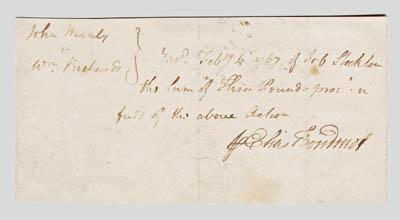 John Manly
Wm. Richards
Recd. Feby. 4 1767 of Job Stockton
the Sum of Three Pounds proc. in
full of the above Action
Elias Boudinot